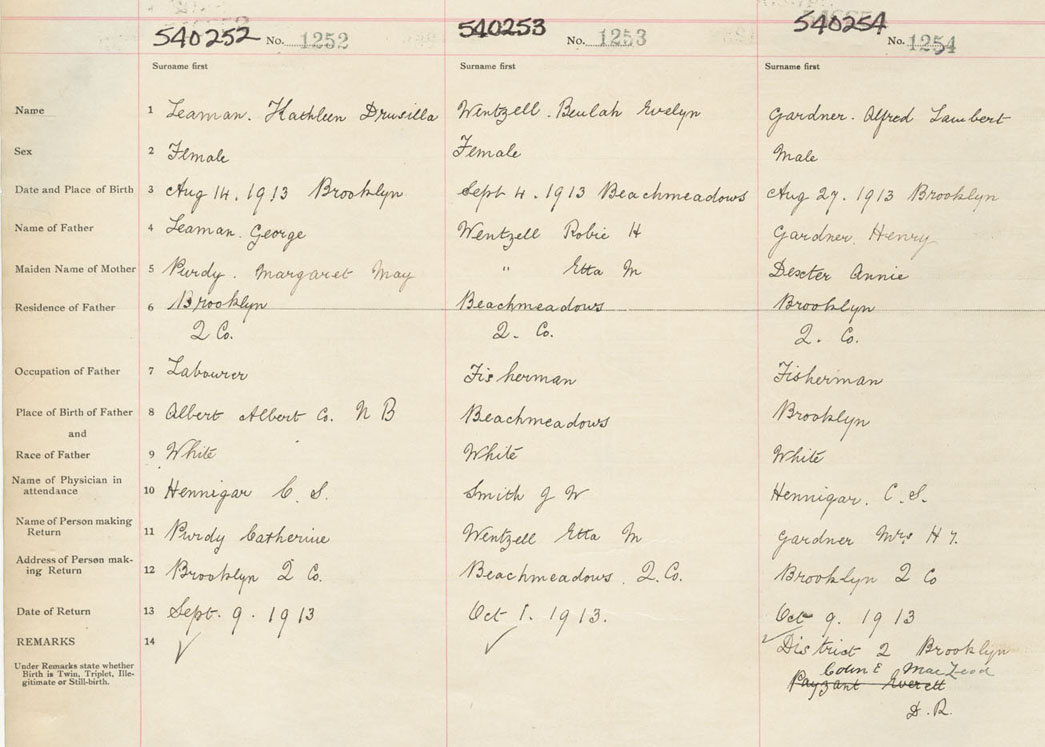 540252 No. 1252 540253 No. 1253 540254 No. 1254
Surname first Surname first Surname first
Name 1 Leaman. Kathleen Drusilla Wentzell. Beulah Evelyn Gardner. Alfred Lambert
Sex 2 Female Female Male
Date and Place of Birth 3 Aug 14. 1913 Brooklyn Sept 4. 1913 Beachmeadows Aug 27. 1913 Brooklyn
Name of Father 4 Leaman. George Wentzell Robie H Gardner. Henry
Maiden Name of Mother 5 Purdy. Margaret May " Etta M Dexter Annie
Residence of Father 6 Brooklyn Beachmeadows Brooklyn
Q Co. Q. Co. Q. Co.
Occupation of Father 7 Labourer Fisherman Fisherman
Place of Birth of Father 8 Albert Albert Co. N B Beachmeadows Brooklyn
and
Race of Father 9 White White White
Name of Physician in
attendance 10 Hennigar C. S. Smith J W Hennigar. C. S.
Name of Person making
Return 11 Purdy Catherine Wentzell Etta M Gardner Mrs H
Address of Person mak-
ing Return 12 Brooklyn Q Co. Beachmeadows. Q. Co. Brooklyn Q Co
Date of Return 13 Sept. 9. 1913 Oct 1. 1913. Oct 9. 1913
REMARKS 14 ✓ ✓ ✓ District 2 Brooklyn
Under Remarks state whether
Birth is Twin, Triplet, Ille-
gitimate or Still-birth.
Colin E MacLeod
Payzant Everett
D. R.